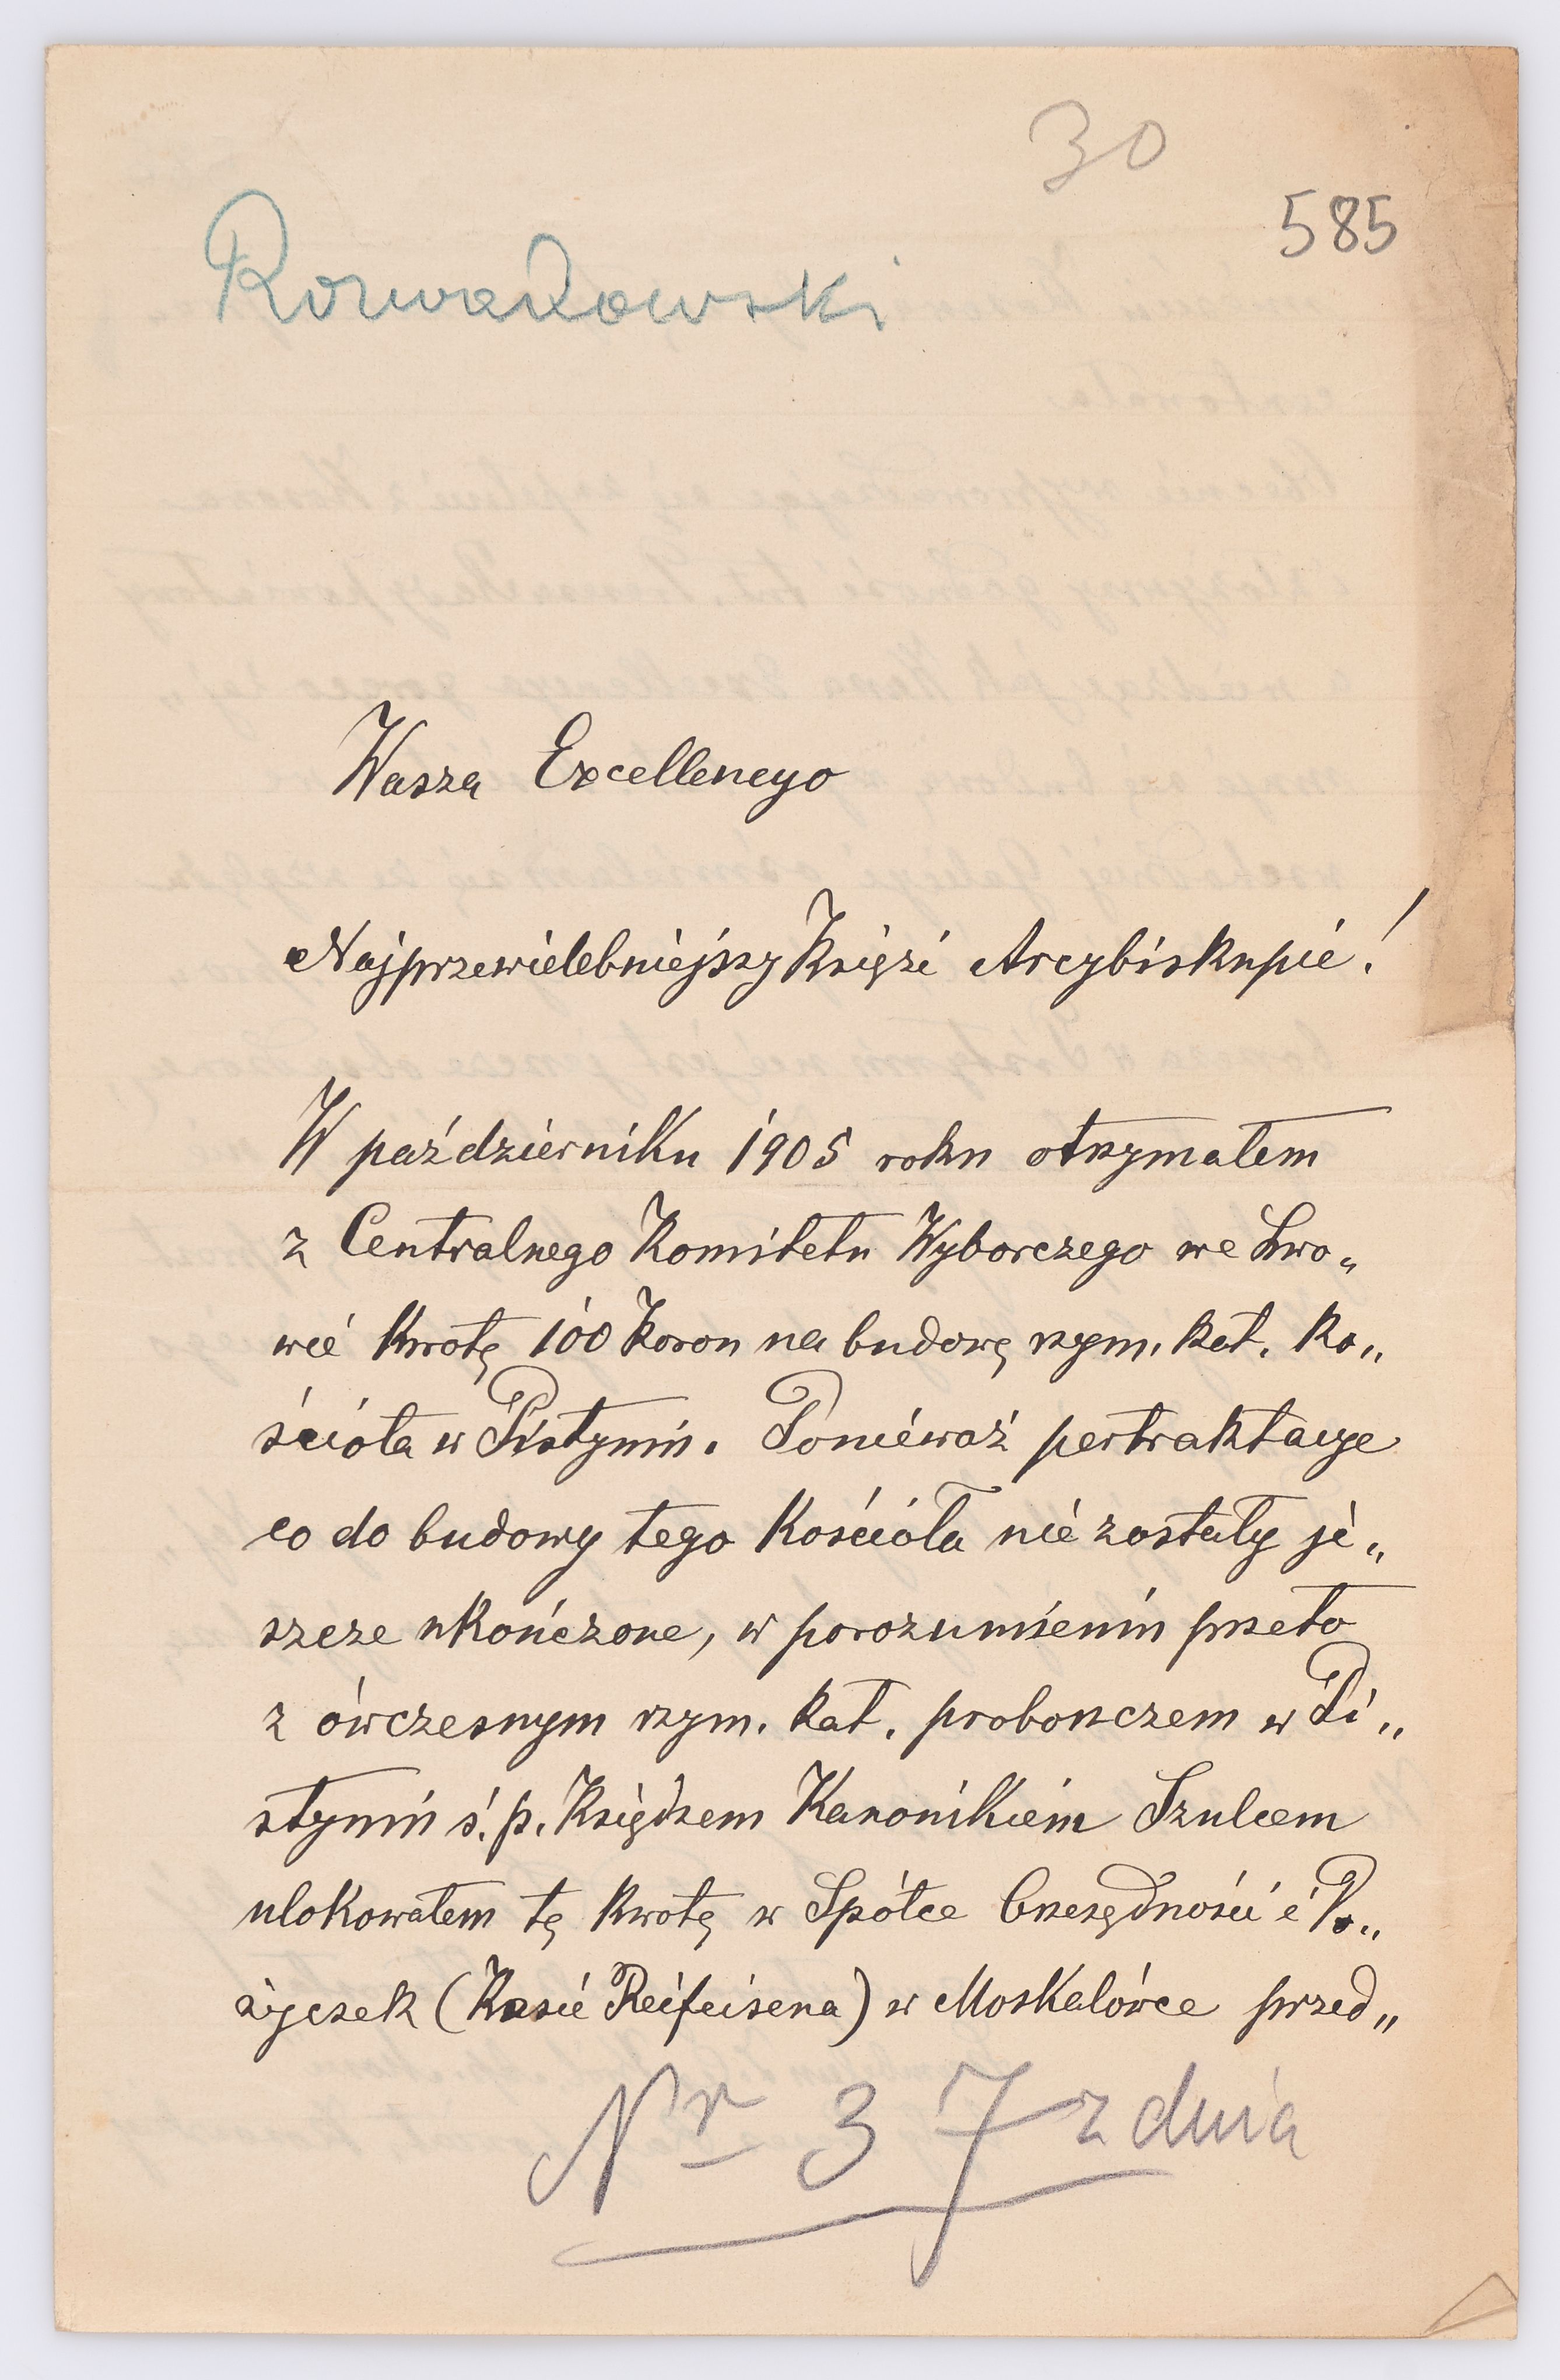 30
585
Rozwadowski
Wasza Excellencyo
Najprzewielebniejszy Księże Arcybiskupie!
W październiku 1905 roku otrzymałem
z Centralnego Komitetu Wyborczego we Lwo„
wie kwotę 100 koron na budowę rzym. kat. ko„
ścioła w Pistyniu. Ponieważ pertraktacye
co do budowy tego kościoła nie zostały je„
szcze ukończone, w porozumieniu przeto
z ówczesnym rzym. kat. proboszczem w Pi„
styniu ś. p. Księdzem Kanonikiem Szulcem
ulokowałem tę kwotę w Spółce Oszczędności i Po„
życzek (Kasie Reifeisena) w Moskalówce przed„
Nr 37 z dnia